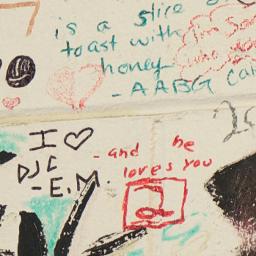 is a slice
toast with
honey
- AABG
I'm So
I ♡
DJC
- E.M.
- and he
loves you